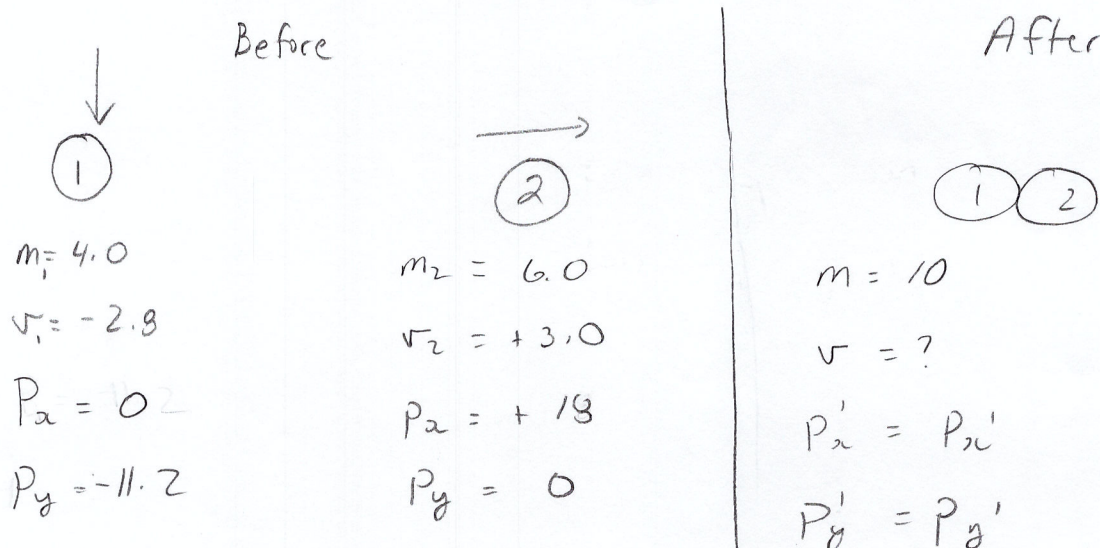 Before
1
m₁ = 4.0
v₁ = -2.8
Px = 0
Py = -11.2
2
m₂ = 6.0
v₂ = +3.0
Px = + 18
Py = 0
After
1 2
m = 10
v = ?
Px' = Px'
Py' = Py'